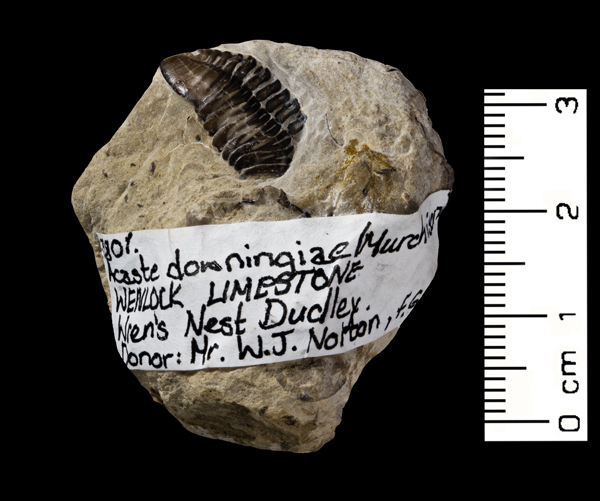 Acaste downingiae (Murchison)
WENLOCK LIMESTONE
Wren's Nest Dudley.
Donor: Mr. W.J. Norton, F.G
3
2
1
0 cm